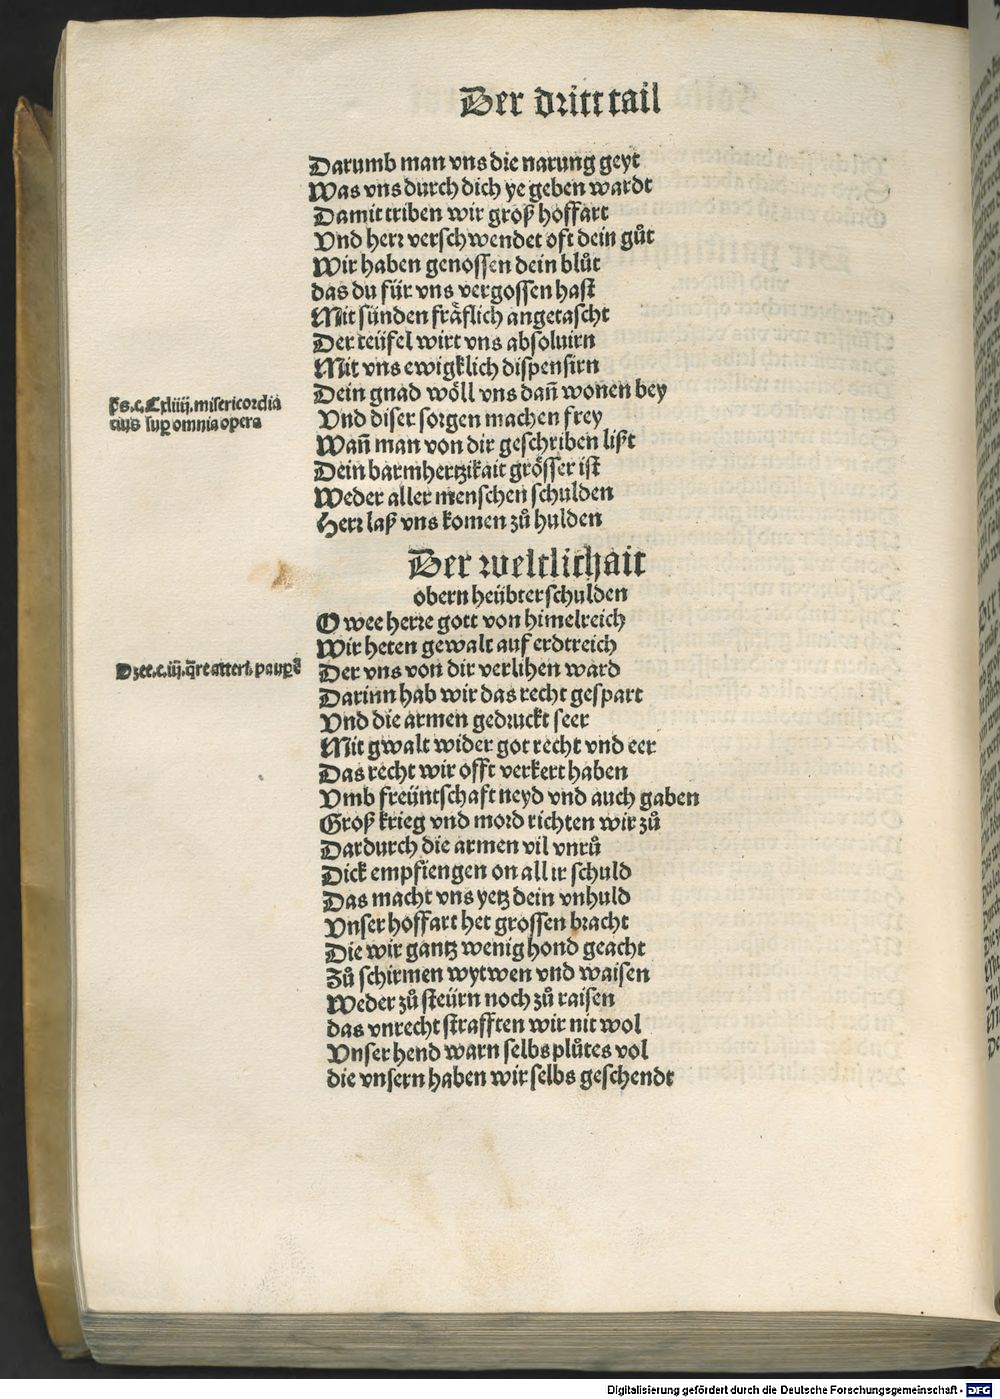 Der dritt tail
Darumb man vns die narung geyt
Was vns durch dich ye geben wardt
Damit triben wir groß hoffart
Vnd herr verschwendet oft dein gůt
Wir haben genossen dein blůt
das du für vns vergossen hast
Mit sünden fräflich angetascht
Der teüfel wirt vns absoluirn
Mit vns ewigklich dispensirn
Dein gnad wöll vns dañ wonen bey
Ps.c.Cxliiij.misericordia
tius sup omnia opera
Vnd diser sorgen machen frey
Wañ man von dir geschriben lißt
Dein barmhertzikait grösser ist
Weder aller menschen schulden
Herr laß vns komen zů hulden
Der weltlithait
obern heübter schulden
O wee herre gott von himelreich
Wir heten gewalt auf erdtreich
Der vns von dir verlihen ward
Darinn hab wir das recht gespart
Vnd die armen gedruckt seer
Mit gwalt wider got recht vnd eer
Das recht wir offt verkert haben
Vmb freüntschaft neyd vnd auch gaben
Groß krieg vnd mord richten wir zů
Dardurch die armen vil vnrů
Dick empfiengen on all ir schuld
Das macht vns yetz dein vnhuld
Vnser hoffart het grossen bracht
Die wir gantz wenig hond geacht
Zů schirmen wytwen vnd waisen
Weder zů steürn noch zů raisen
das vnrecht strafften wir nit wol
Vnser hend warn selbs plůtes vol
die vnsern haben wir selbs geschendt
Digitalisierung gefördert durch die Deutsche Forschungsgemeinschaft - DFG